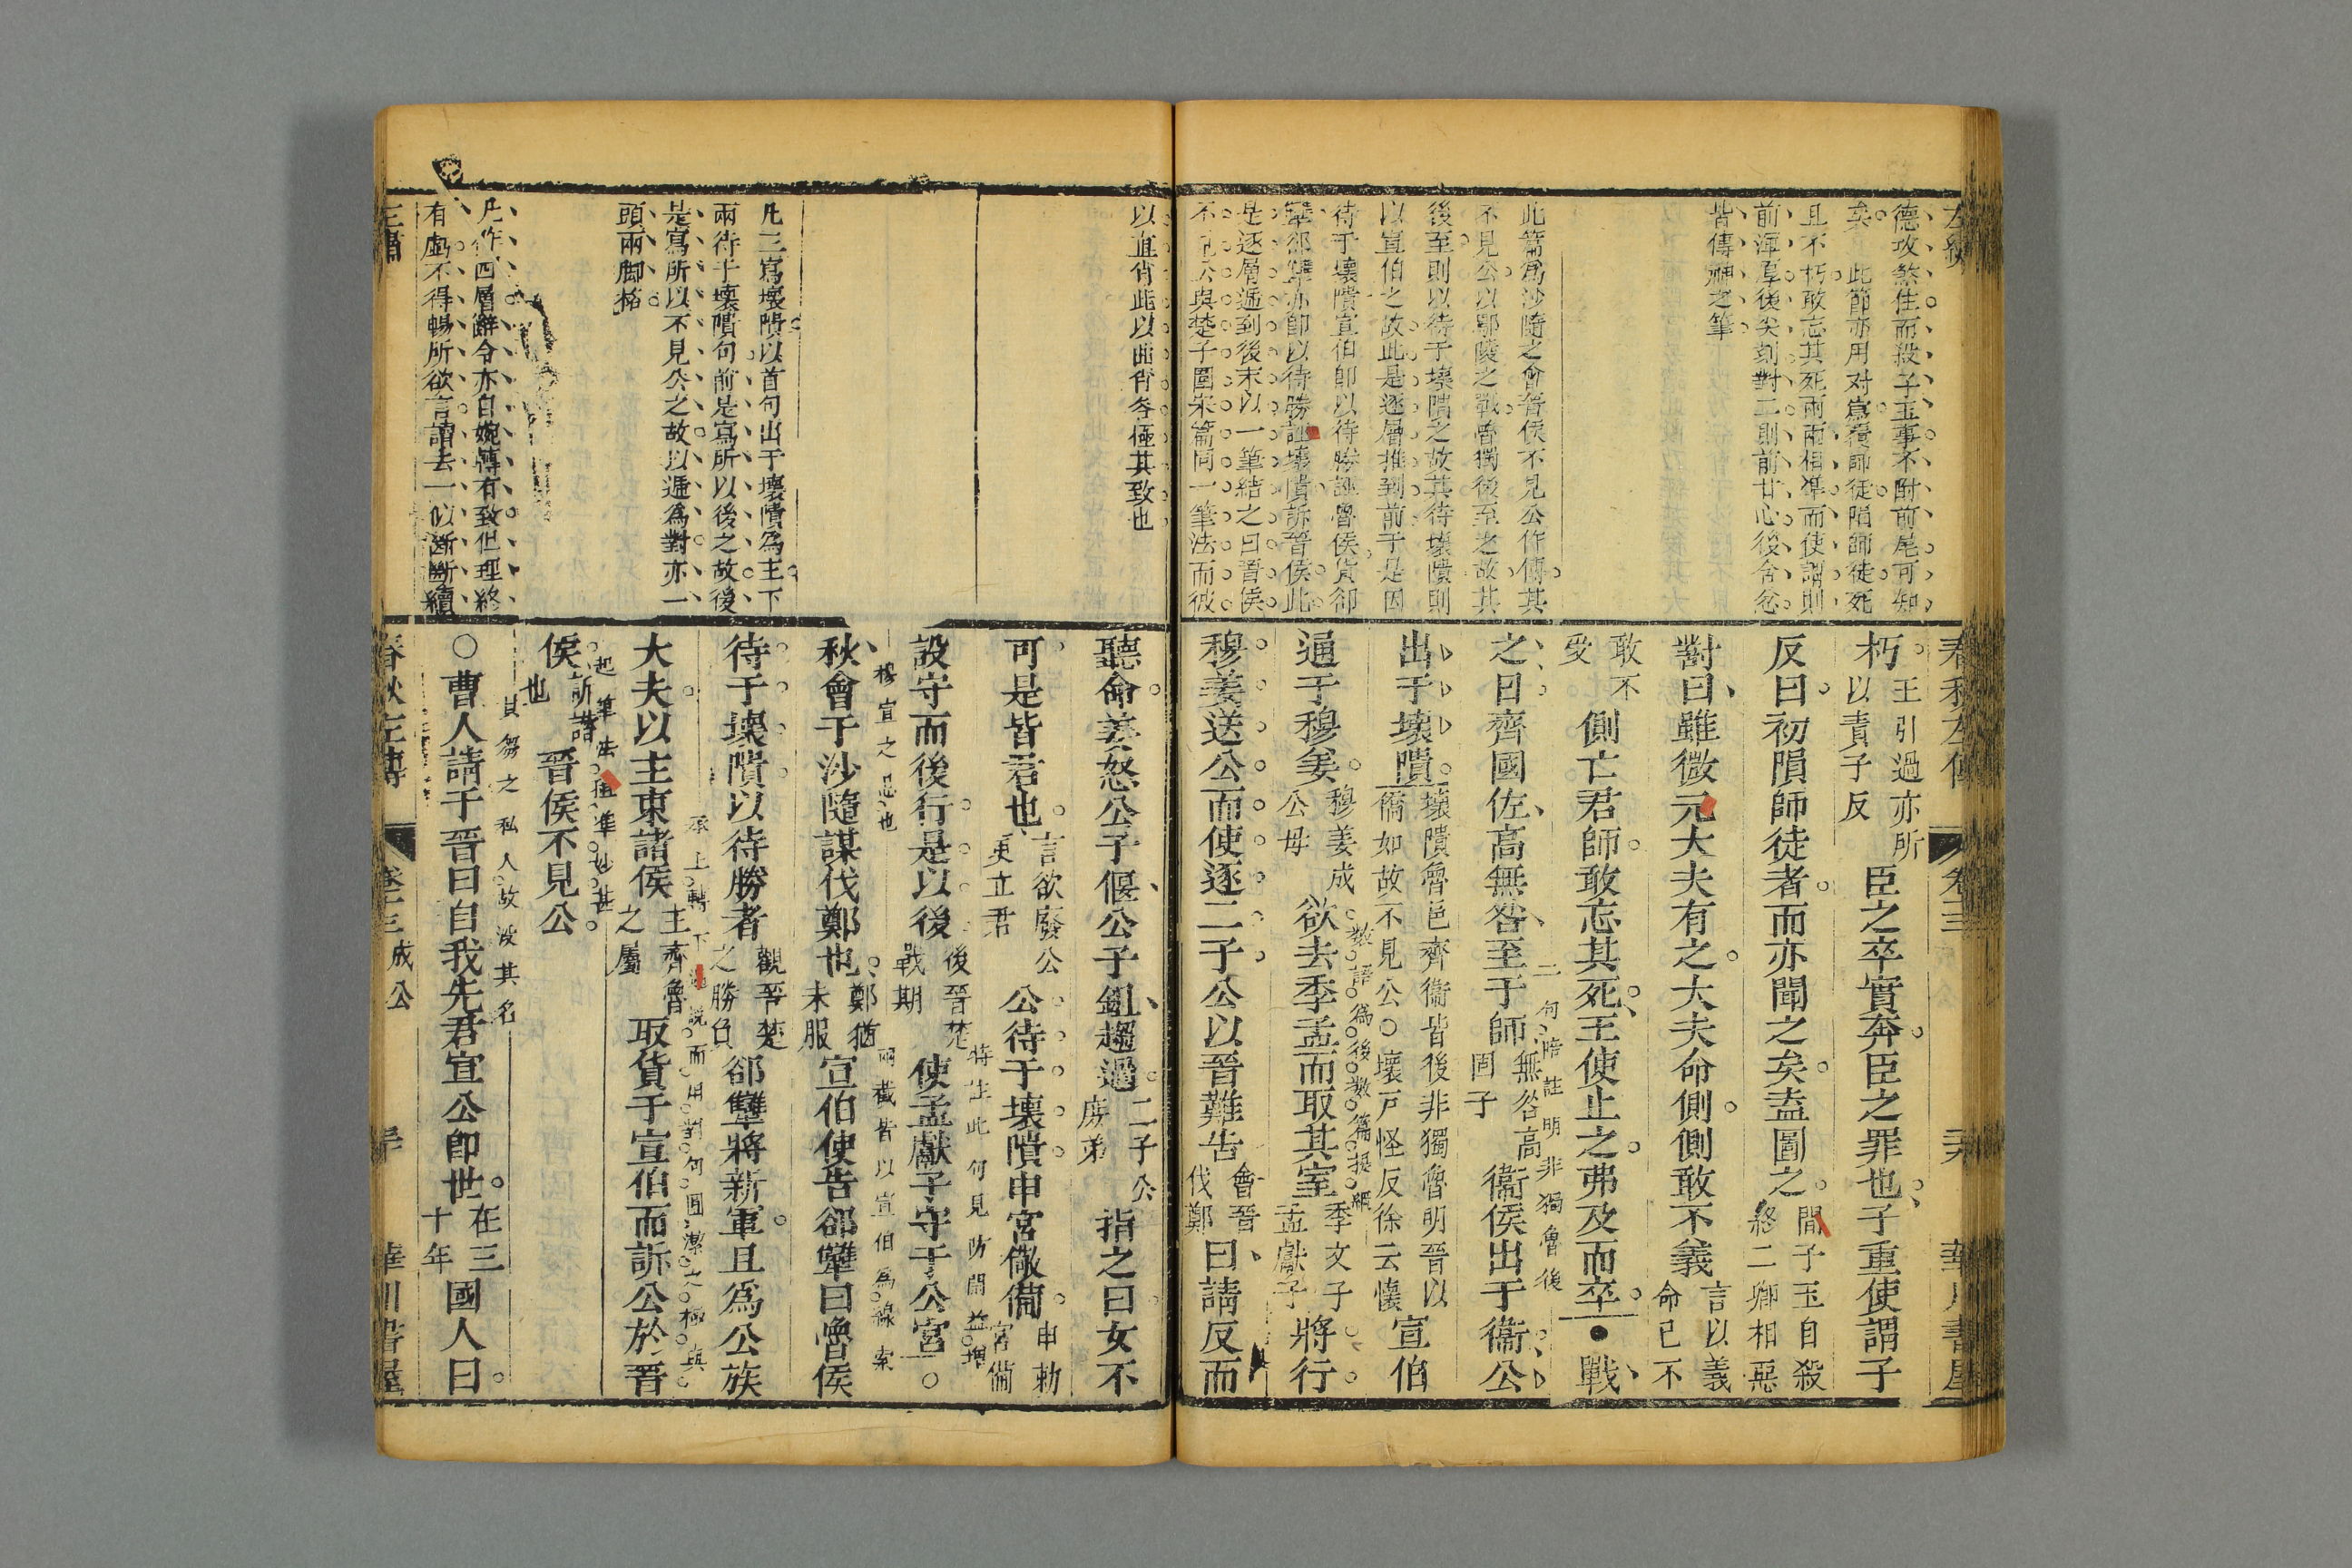 左繡
德攻煞住而殺子玉事不附前尾可知
矣。此節亦用对寫覆師徒隕師徒死
且不朽敢忘其死兩兩相準而使謂則
前渾厚後尖刻對二則前甘心後含忿
皆傳神之筆
此篇為沙隨之會晉侯不見公作傳其
不見公以鄢陵之戰魯獨後至之故其
後至則以待于壞隤之故其待壞隤則
以宣伯之故此是逐層推到前于是因
待于壞隤宣伯即以待勝誣魯侯貨郤
犨郤犨亦即以待勝誣壞隤訴晉侯此
是逐層遞到後末以一筆結之曰晉侯
不見公與楚子圍宋篇同一筆法而彼
春秋左傳 卷十三 華川書屋
朽王引過亦所以責子反臣之卒實奔臣之罪也子重使謂子
反曰初隕師徒者而亦聞之矣盍圖之聞子玉自殺終二卿相惡
對曰雖微元大夫有之大夫命側側敢不義言以義命已不
敢不受側亡君師敢忘其死王使止之弗及而卒●戰
二句暗註明非獨魯後
之日齊國佐高無咎至于師無咎高固子衞侯出于衞公
出于壞隤壞隤魯邑齊衞皆後非獨魯明晉以僑如故不見公○壞戸怪反徐云懷宣伯
數語為後數篇提綱
通于穆姜穆姜成公母欲去季孟而取其室季文子孟獻子將行
穆姜送公而使逐二子公以晉難告會晉伐鄭曰請反而
以直省此以曲省各極其致也
凡三寫壞隤以首句出于壞隤為主下
兩待于壞隤句前是寫所以後之故後
是寫所以不見公之故以遞為對亦一
頭兩脚格
凡作四層辭令亦自婉轉有致但理終
有虧不得暢所欲言讀去一似漸斷續
聽命姜怒公子偃公子鉏趨過二子公庶弟指之曰女不
可是皆君也言欲廢公更立君公待于壞隤申宮儆備申勅宮備
特注此句見防閑益增
設守而後行是以後後晉楚戰期使孟獻子守于公宮○
穆宣之忌也
兩截皆以宣伯為線索
秋會于沙隨謀伐鄭也鄭猶未服宣伯使告郤犨曰魯侯
待于壞隤以待勝者觀晉楚之勝負郤犨將新軍且為公族
承上轉下遞說而用對句圓潔之極與
大夫以主東諸侯主齊魯之屬取貨于宣伯而訴公於晉
起筆法相準妙甚
侯訴譖也晉侯不見公
貝芻之私人故沒其名
○曹人請于晉曰自我先君宣公即世在三十年國人曰
左繡
春秋左傳 卷十三 成公 華川書屋